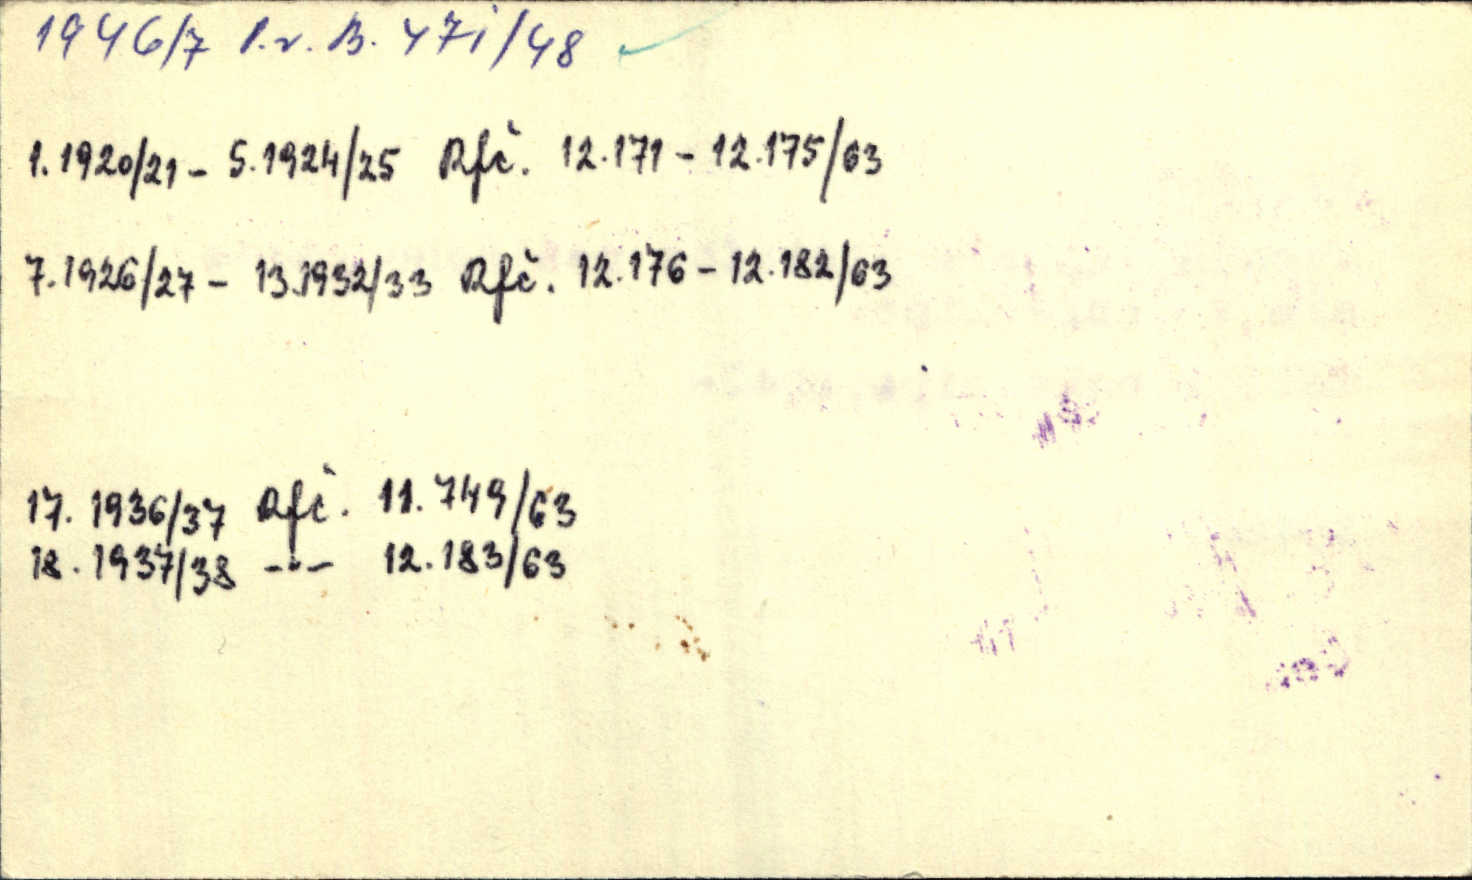 1946/7 P.r. B. 471/48
1.1920/21 - 5.1924/25 Rfč. 12.171 - 12.175/63
7.1926/27 - 13.1932/33 Rfč. 12.176 - 12.182/63
17. 1936/37 Rfč. 11.749/63
18. 1937/38 -"- 12.183/63